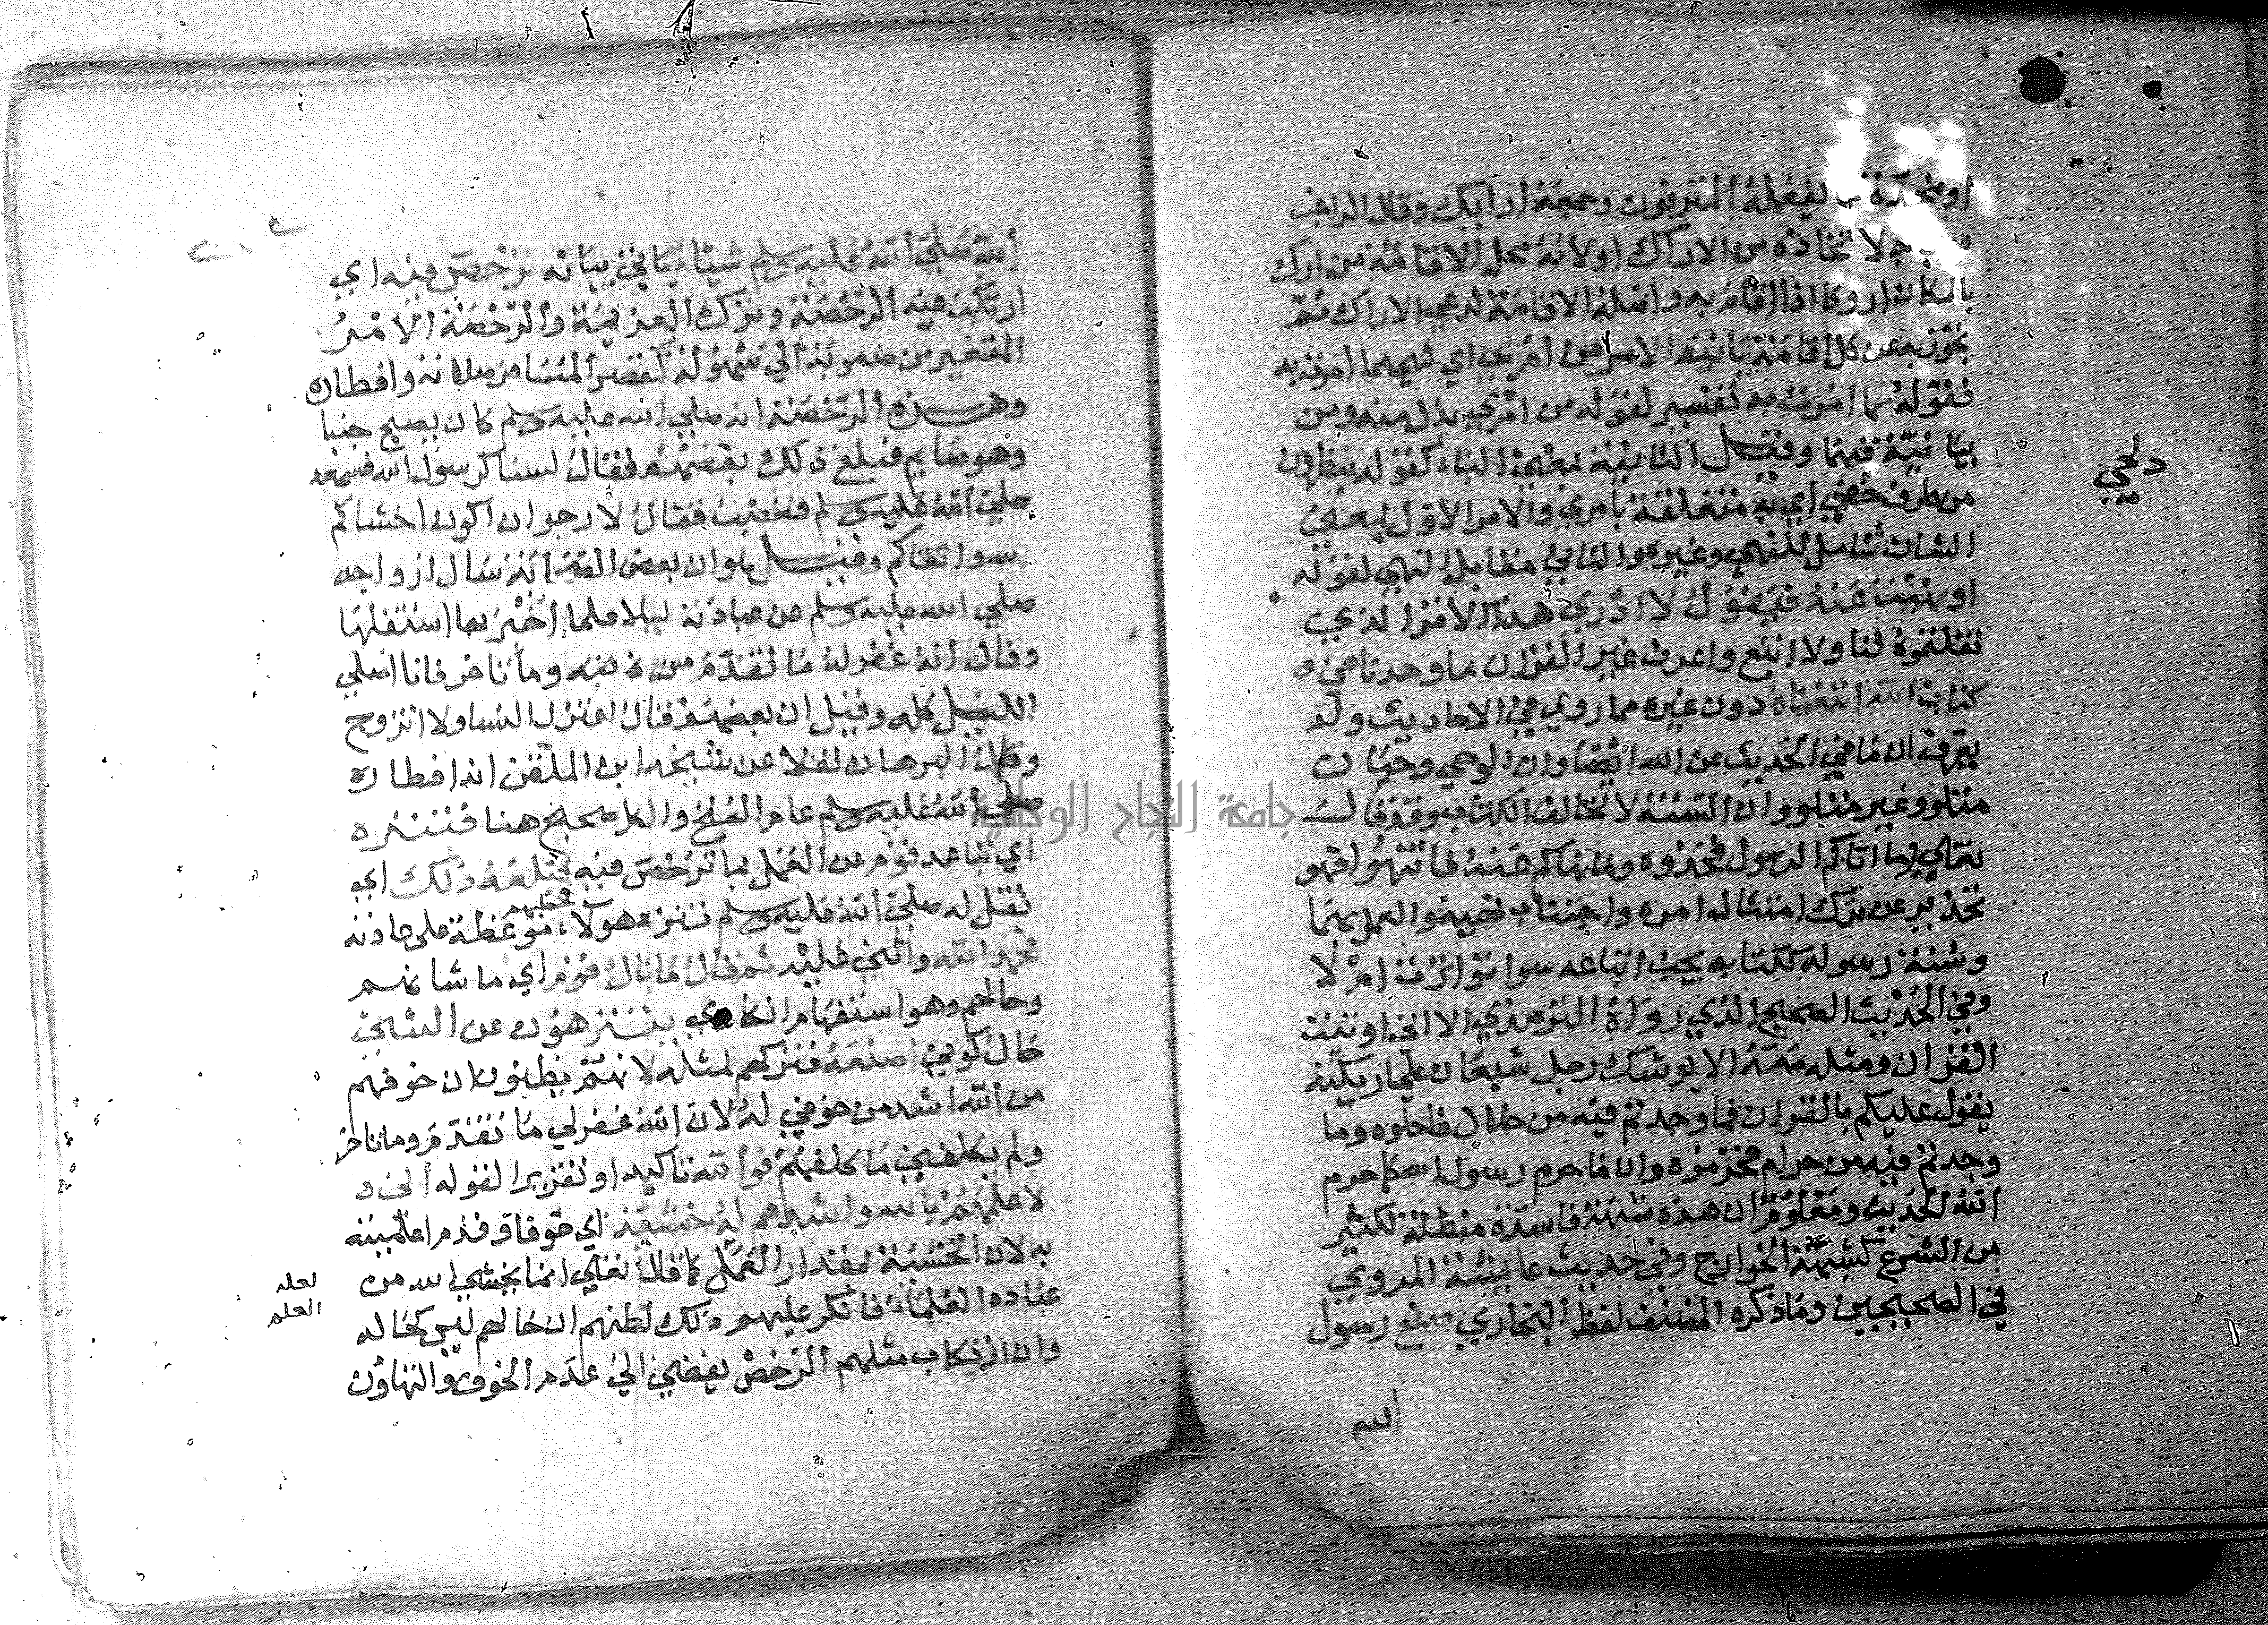 او مخدة يفعله المترفون وجمعه ارايك وقال الراغب
به لاتخاذه من الاراك او لانه محل الاقامة من ارك
بالمكان اروكا اذا اقام به واصله الاقامة لرعي الاراك ثم
تجوز به عن كل اقامة يأتيه الامر من امري اي شي مما امرت به
فقوله مما امرت به تفسير لقوله من امري بدل منه ومن
بيانية فيهما وقيل الثانية بمعنى الباء كقوله ينظرون
من طرف خفي اي به متعلقة بامري والامر الاول بمعنى
الشان شامل للنهي وغيره والثاني مقابل النهي لقوله
او نهيت عنه فيقول لا ادري هذا الامر الذي
نقلتموه لنا ولا اتبع واعرف غير القران ما وجدنا في
كتاب الله اتبعناه دون غيره مما روي في الاحاديث ولم
يعرف ان ما في الحديث عن الله ايضا وان الوحي وحيان
متلو وغير متلو وان السنة لا تخالف الكتاب وقد قال
تعالي وما اتاكم الرسول فخذوه وما نهاكم عنه فانتهوا فهو
تحذير عن ترك امتثال امره واجتناب نهيه والعمل بهما
وسنة رسوله ككتابه يجب اتباعه سوا تواترت ام لا
وفي الحديث الصحيح الذي رواه الترمذي الا اني اوتيت
القران ومثله معه الا يوشك رجل شبعان علي اريكته
يقول عليكم بالقران فما وجدتم فيه من حلال فاحلوه وما
وجدتم فيه من حرام فحرموه وان ما حرم رسول الله كما حرم
الله الحديث ومعلوم ان هذه شبهة فاسدة مبطلة لكثير
من الشرع كشبهة الخوارج وفي حديث عايشة المروي
في الصحيحين وما ذكره المصنف لفظ البخاري صنع رسول
الله
دلجي
الله صلي الله عليه وسلم شيئا ياتي بيانه ترخص فيه اي
ارتكب فيه الرخصة وترك العزيمة والرخصة الامر
المتغير من صعوبة الي سهولة كقصر المسافر صلاته وافطاره
وهذه الرخصة انه صلي الله عليه وسلم كان يصبح جنبا
وهو صايم فبلغ ذلك بعضهم فقال لسنا كرسول الله فسمعه
صلي الله عليه وسلم فغضب فقال لارجو ان اكون اخشاكم
لله واتقاكم وقيل هو ان بعض الصحابة سال ازواجه
صلي الله عليه وسلم عن عبادته ليلا فلما اخبر بها استقلها
وقال انه غفر له ما تقدم من ذنبه وما تاخر فانا اصلي
الليل كله وقيل ان بعضهم قال اعتزل النسا ولا اتزوج
وقال البرهان نقلا عن شيخه ابن الملقن انه افطاره
صلي الله عليه وسلم عام الفتح والكل صحيح هنا فتنزه
اي تباعد قوم عن العمل بما ترخص فيه فبلغه ذلك اي
نقل له صلي الله عليه وسلم تنزه هولاء فخطبهم موعظة علي عادته
فحمد الله واثني عليه ثم قال ما بال قوم اي ما شانهم
وحالهم وهو استفهام انكاري يتنزهون عن الشي
حال كوني اصنعه فتركهم لمثله لانهم يظنون ان خوفهم
من الله اشد من خوفي له لان الله غفر لي ما تقدم وما تاخر
ولم يكلفني ما كلفهم فو الله تاكيد او تقرير لقوله اني
لاعلمهم بالله واشدهم له خشية اي خوفا وقدم اعلميته
به لان الخشية بمقدار العمل كما قال تعالي انما يخشي الله من
عباده العلماء فانكر عليهم ذلك لظنهم ان حالهم ليس كحاله
وان ارتكاب مثلهم الرخص يفضي الي عدم الخوف والتهاون
لعله
العلم
جامعة النجاح الوطنية